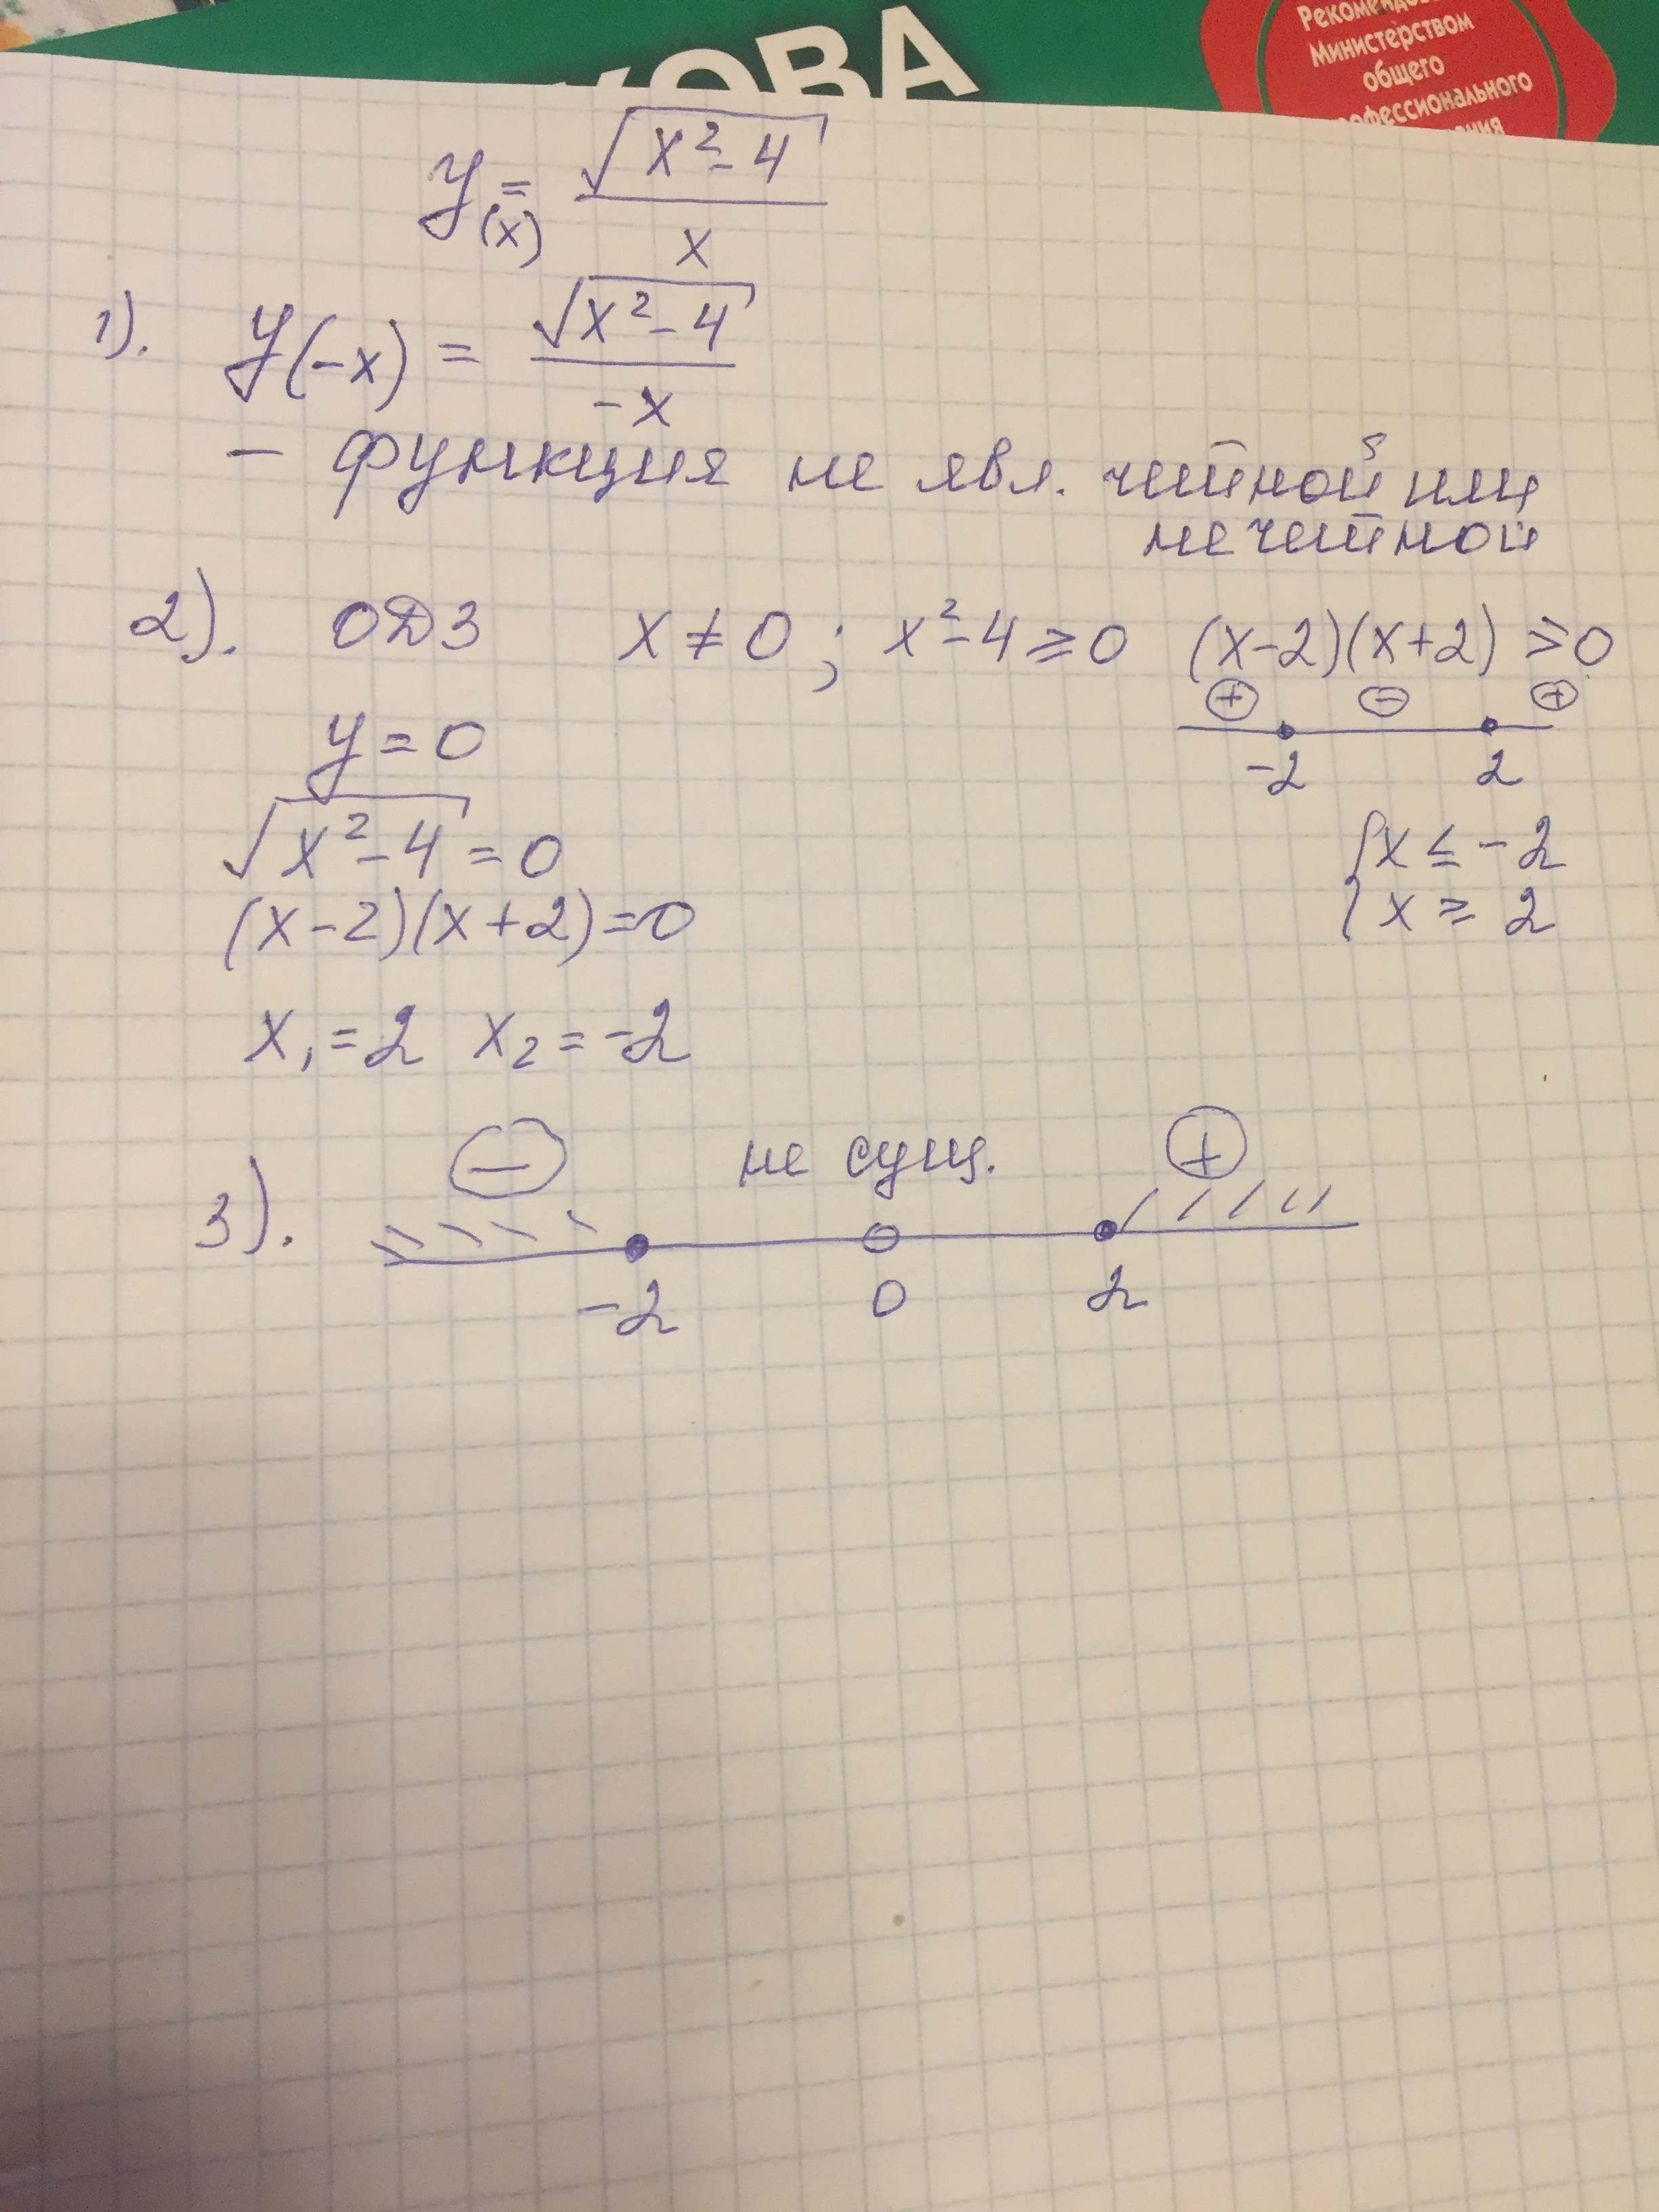 КОВА
Рекомендо
Министерством
общего
рофессионального
ния
y(x) = √(x²-4) / x
1). y(-x) = √(x²-4) / -x
- функция не явл. чётной или
нечётной
2). ОДЗ x ≠ 0 ; x²-4 ≥ 0 (x-2)(x+2) ≥ 0
+ - +
y = 0
-2 2
√(x²-4) = 0
{ x ≤ -2
(x-2)(x+2)=0
x ≥ 2
x₁ = 2 x₂ = -2
- не сущ. +
3).
-2 0 2